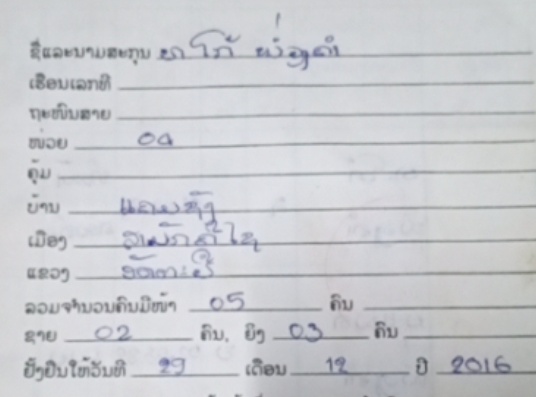 ຊື່ແລະນາມສະກຸນ ທ ໂກ້ ພ່ງຄຳ
ເຮືອນເລກທີ
ຖະໜົນສາຍ
ໜ່ວຍ 04
ຄຸ້ມ
ບ້ານ ແຄມຊັງ
ເມືອງ ສາມັກຄີໄຊ
ແຂວງ ອັດຕະປື
ລວມຈຳນວນຄົນມີໜ້າ 05 ຄົນ
ຊາຍ 02 ຄົນ, ຍິງ 03 ຄົນ
ຢັ້ງຢືນໃຫ້ວັນທີ 29 ເດືອນ 12 ປີ 2016